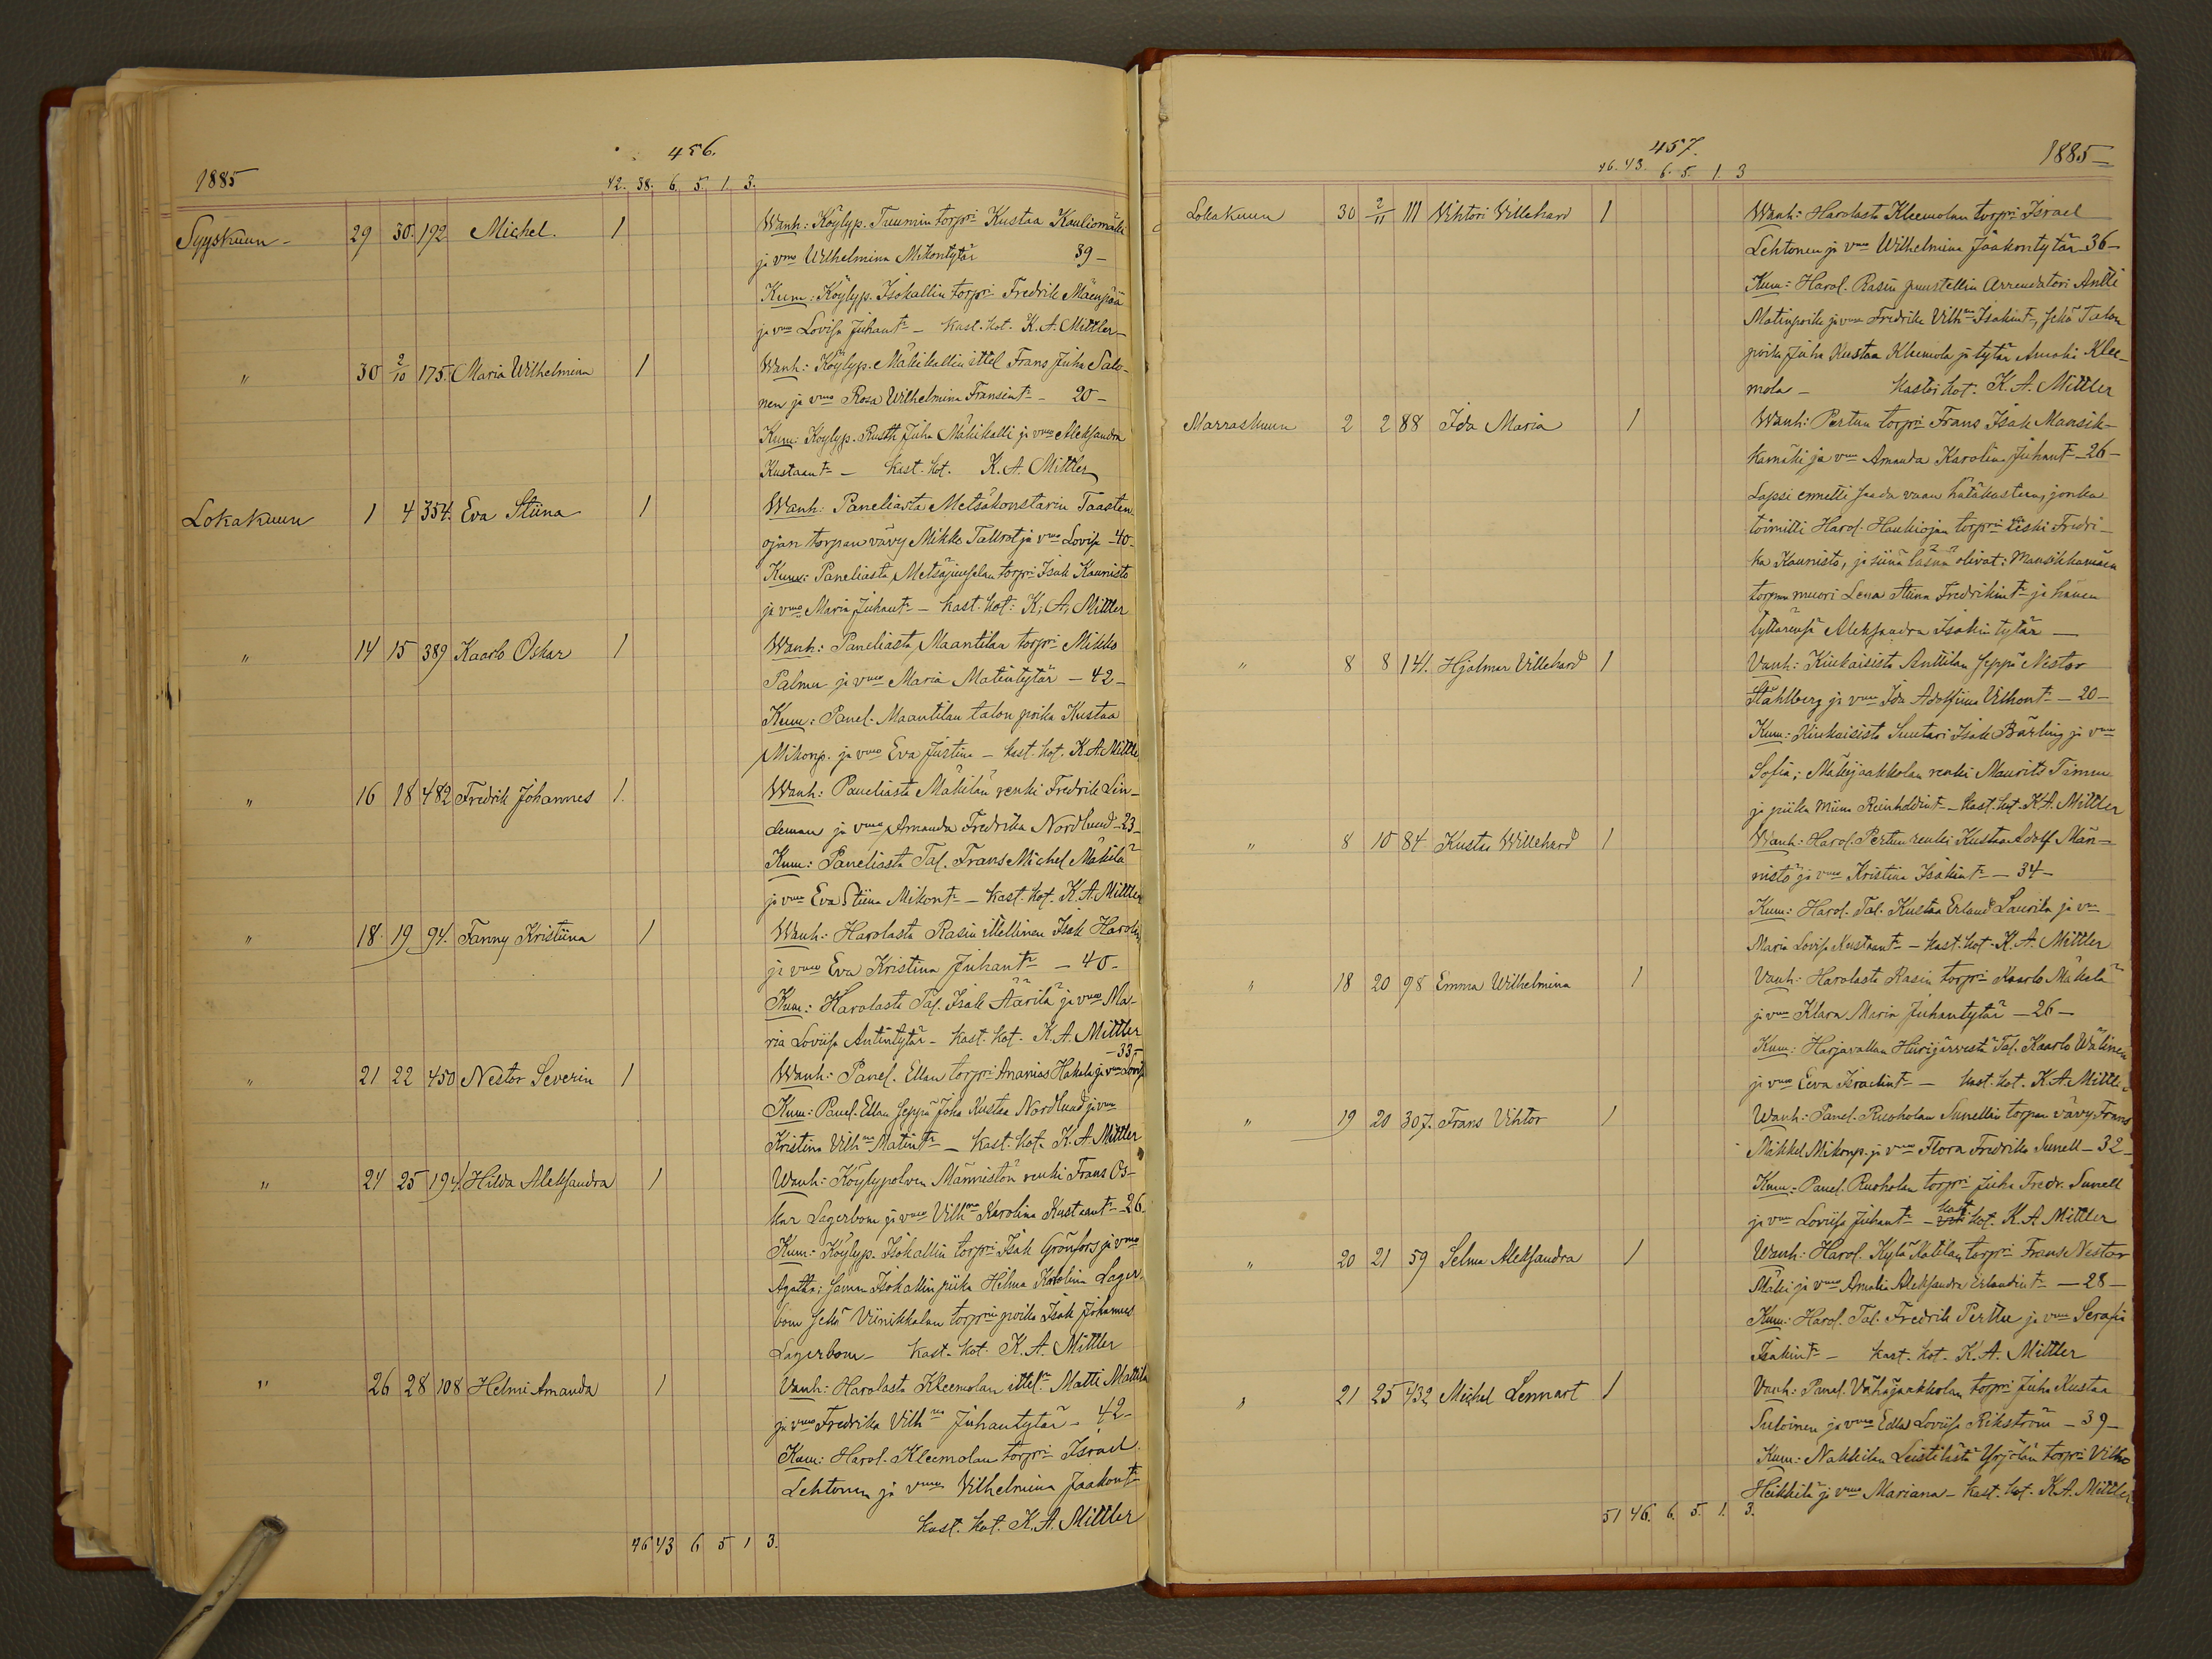 456.
1885
42. 38. 6. 5. 1. 3.
Syyskuun 29 30. 192 Michel. 1 Wanh: Köylyp. Tuumin torpri Kustaa Kouliomäki
ja vmo Wilhelmina Mikontytär 39
Kum: Köylyp. Isokallin torpri Fredrik Mäenpää
ja vmo Lovisa Juhant. – Kast. hot. K. A. Mittler
" 30 2/10 175. Maria Wilhelmina 1 Wanh: Köylyp. Mäkikallin ittel Frans Juha Salo-
nen ja vmo Rosa Wilhelmina Fransint. – 20 –
Kum: Köylyp. Rustt Juha Mäkikalli ja vmo Aleksandra
Kustaant. – Kast. hot. K. A. Mittler
Lokakuun 1 4 354. Eva Stiina 1 Wanh: Paneliasta Metsäkonstarin Taasten
ojan torpan vävy Mikko Tallrot ja vmo Lovisa – 40 –
Kum: Paneliasta Metsäjuuselan torpri Isak Kaunisto
ja vmo Maria Juhant. – Kast. hot: K. A. Mittler
" 14 15 389 Kaarlo Oskar 1 Wanh: Paneliasta Maantilan torpri Mikko
Palmu ja vmo Maria Matintytär – 42 –
Kum: Panel. Maantilan talon poika Kustaa
Mikonp. ja vmo Eva Justina – Kast. hot. K. A. Mittler
" 16 18 482 Fredrik Johannes 1. Wanh: Paneliasta Mäkilän renki Fredrik Lin-
deman ja vmo Amanda Fredrika Nordlund – 23 –
Kum: Paneliasta Tal. Frans Michel Mäkilä
ja vmo Eva Stiina Mikont. – Kast. hot. K. A. Mittler
" 18 19 94. Fanny Kristiina 1 Wanh: Harolasta Rasin ittellinen Isak Harolin
ja vmo Eva Kristina Juhant. – 40 –
Kum: Harolasta Tal. Isak Äärilä ja vmo Ma-
ria Loviisa Antintytär – Kast. hot. K. A. Mittler
– 33 –
" 21 22 450 Nestor Severin 1 Wanh: Panel. Ellan torpri Ananias Hakala ja vmo Lovisa
Kum: Panel. Ellan Seppä Joha Kustaa Nordlund ja vmo
Kristina Vilhma Matint. – Kast. hot. K. A. Mittler
" 24 25 194. Hilda Aleksandra 1 Wanh: Köylypolven Männistön renki Frans Os-
kar Lagerbom ja vmo Vilhma Karolina Kustaant. – 26.
Kum: Köylyp. Isokallin torpri Isak Grönfors ja vmo
Agatha; saman Isokallin piika Hilma Karolina Lager-
bom sekä Viinikkalan torprin poika Isak Johannes
Lagerbom – Kast. hot. K. A. Mittler
" 26 28 108 Helmi Amanda 1 Vanh: Harolasta Kleemolan ittel. Matti Mattila
ja vmo Fredrika Vilhma Juhantytär – 42 –
Kum: Harol. Kleemolan torpri Israel
Lehtonen ja vmo Vilhelmina Jaakont.
Kast. hot. K. A. Mittler
46 43 6 5 1 3.
457.
1885
46. 43. 6. 5. 1. 3
Lokakuun 30 2/11 111 Vihtori Villehard 1 Wanh: Harolasta Kleemolan torpri Israel
Lehtonen ja vmo Wilhelmina Jaakontytär 36 –
Kum: Harol. Rasin puustellin arrendatori Antti
Matinpoika ja vmo Fredrika Vilhma Isakint., sekä Talon
poika Juha Kustaa Kleemola ja tytär Amalia Klee-
mola – Kastoi hot. K. A. Mittler
Marraskuun 2 2 88 Ida Maria 1 Wanh: Pertun torpri Frans Isak Mansik-
kamäki ja vmo Amanda Karolina Juhant. – 26 –
Lapsi ennetti saada vaan hätäkasteen, jonka
toimitti Harol. Haukiojan torprin leski Fredri-
ka Kaunisto, ja siinä läsnä olivat: Mansikkamäen
torpan muori Lena Stiina Fredrikint. ja hänen
tyttärensä Aleksandra Isakin tytär –
" 8 8 141. Hjalmar Villehard 1 Vanh: Kiukaisista Anttilan Seppä Nestor
Ståhlberg ja vmo Ida Adolfiina Vilhont. – 20 –
Kum: Kiukaisista Suutari Isak Bärling ja vmo
Sofia; Mäkijaakkolan renki Maurits Timm
ja piika Miina Reinholdint. – Kast. hot. K. A. Mittler
" 8 10 84 Kustaa Willehard 1 Wanh: Harol. Pertun renki Kustaa Adolf Män-
nistö ja vmo Kristina Isakint. – 34 –
Kum: Harol. Tal. Kustaa Erland Laurila ja vmo
Maria Lovisa Kustaant. – Kast. hot. K. A. Mittler
" 18 20 98 Emma Wilhelmina 1 Vanh: Harolasta Rasin torpri Kaarlo Mäkelä
ja vmo Klara Maria Juhantytär – 26 –
Kum: Harjavallan Hiirijärvestä Tal. Kaarlo Wälinen
ja vmo Eeva Israelint. – Kast. hot. K. A. Mittler
" 19 20 307. Frans Vihtor 1 Wanh: Panel. Ruoholan Sunellin torpan vävy Frans
Mikkel Mikonp. ja vmo Flora Fredrika Sunell – 32 –
Kum: Panel. Ruoholan torpri Juha Fredr. Sunell
ja vmo Loviisa Juhant. – Kast. hot. K. A. Mittler
" 20 21 59 Selma Aleksandra 1 Wanh: Harol. Kylä Katilan torpri Frans Nestor
Mäki ja vmo Amalia Aleksandra Erlandint. – 28 –
Kum: Harol. Tal. Fredrik Perttu ja vmo Serafi
Isakint. – Kast. hot. K. A. Mittler
" 21 25 432 Michel Lennart 1 Vanh: Panel. Vähäjaakkolan torpri Juha Kustaa
Suloinen ja vmo Edla Loviisa Rikström – 39 –
Kum: Nakkilan Leistilästä Yrjölän torpri Vilho
Heikkilä ja vmo Mariana – Kast. hot. K. A. Mittler
51 46. 6. 5. 1. 3.